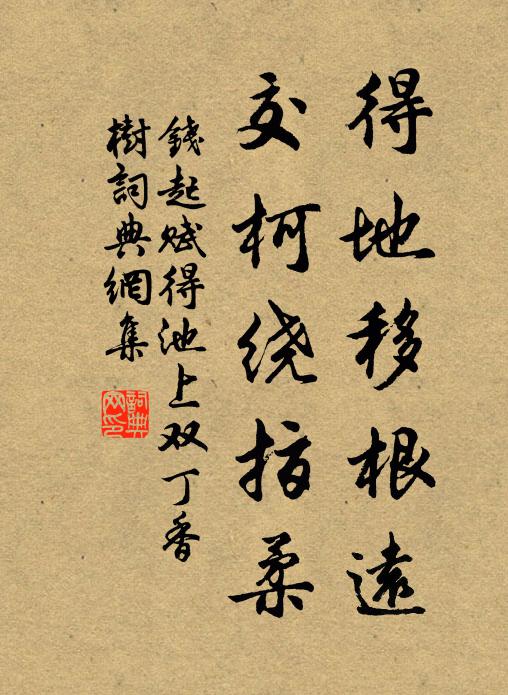 得地移根遠
交柯绕指柔
錢起赋得池上双丁香
樹詞典網集
詞典网印